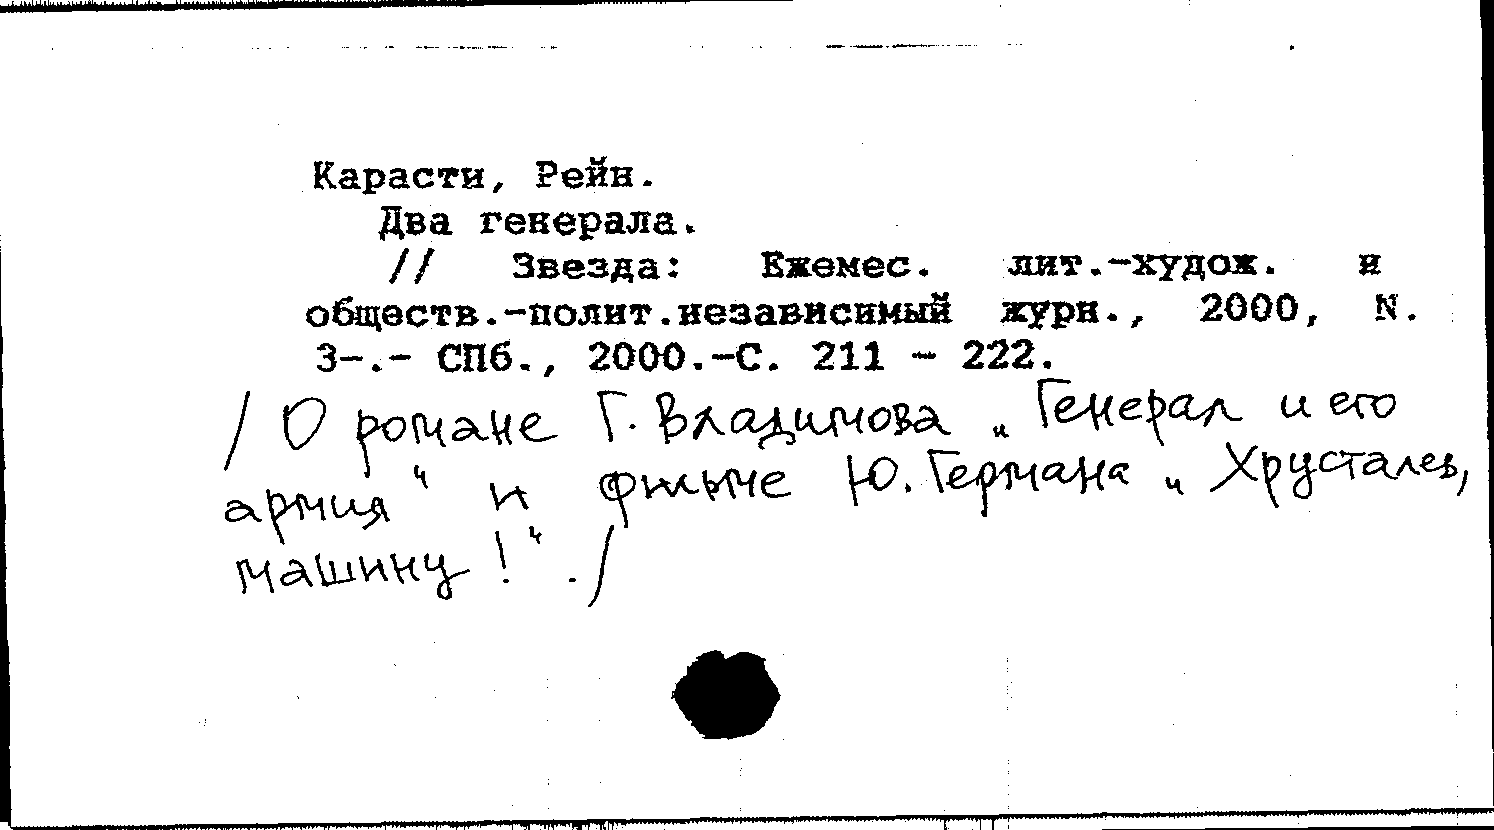 Карасти, Рейн.
Два генерала.
// Звезда: Ежемес. лит.-худож. и
обществ.-полит.независимый журн., 2000, N.
3-.- СПб., 2000.-С. 211 - 222.
/ О романе Г. Владимова „Генерал и его
армия“ и фильме Ю. Германа „Хрусталев,
машину!“./